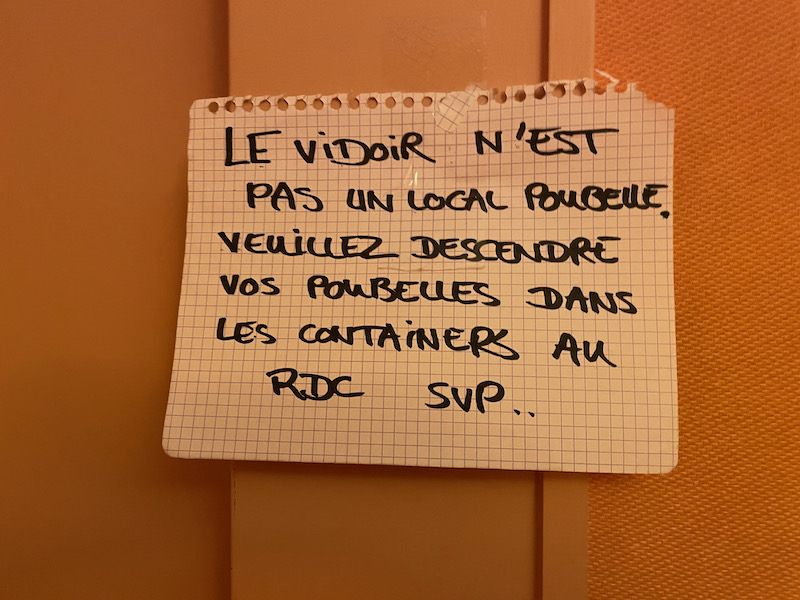 LE ViDOiR N'EST
PAS UN LOCAL POUBELLE.
VEUILLEZ DESCENDRE
VOS POUBELLES DANS
LES CONTAiNERS AU
RDC SVP..